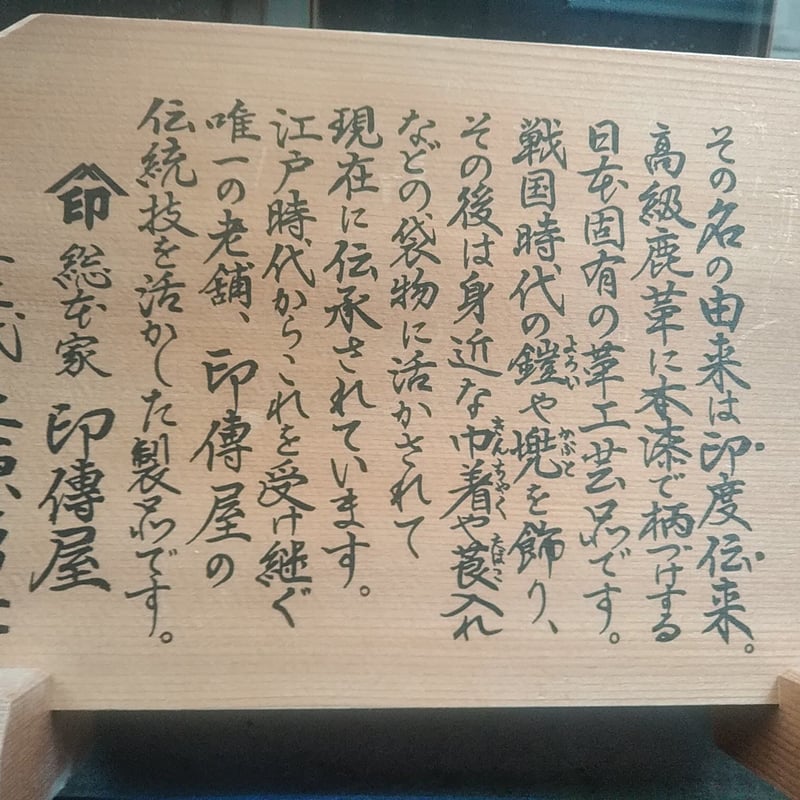 その名の由来は印度伝来。
高級鹿革に本漆で柄づけする
日本固有の革工芸品です。
戦国時代の鎧や兜を飾り、
よろい
かぶと
その後は身近な巾着や莨入れ
きんちゃく
たばこ
などの袋物に活かされて
現在に伝承されています。
江戸時代からこれを受け継ぐ
唯一の老舗、印傳屋の
伝統技を活かした製品です。
印 総本家 印傳屋